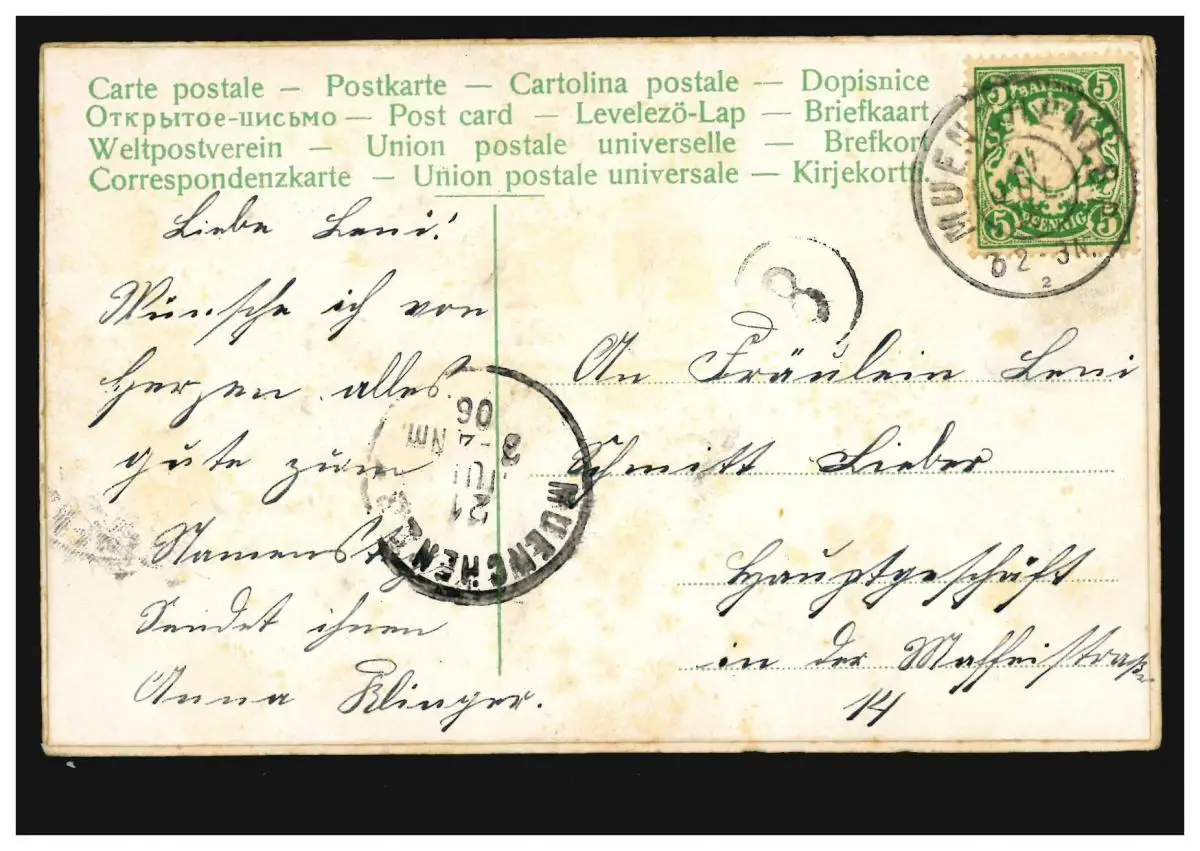 Carte postale — Postkarte — Cartolina postale — Dopisnice
Открытое-письмо — Post card — Levelező-Lap — Briefkaart
Weltpostverein — Union postale universelle — Brefkort
Correspondenzkarte — Union postale universale — Kirjekortti
5 BAYERN 5
5 PFENNIG 5
MUENCHEN
2-3N.
2
8
Liebe Leni!
Wünsche ich von
Herzen alles
gute zum
Namenstag
Sendet ihnen
Anna Klinger.
MUENCHEN
21
JUL
3-4 Nm.
06
An Fräulein Leni
Schmitt Lieber
Hauptgeschäft
in der Maffeistraße
14